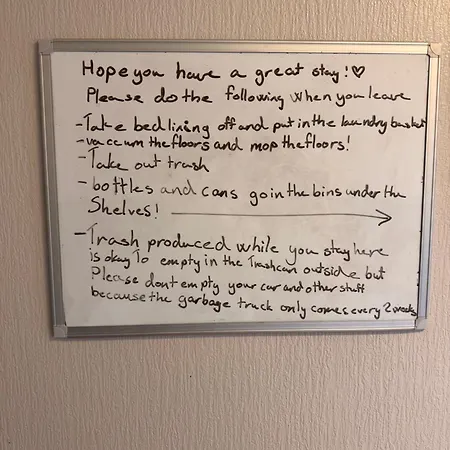 Hope you have a great stay! ♡
Please do the following when you leave
- Take bedlining off and put in the laundry basket
- vaccum the floors and mop the floors!
- Take out trash
- bottles and cans go in the bins under the
Shelves! →
- Trash produced while you stay here
is okay To empty in the Trashcan outside but
Please dont empty your car and other stuff
because the garbage truck only comes every 2 weeks